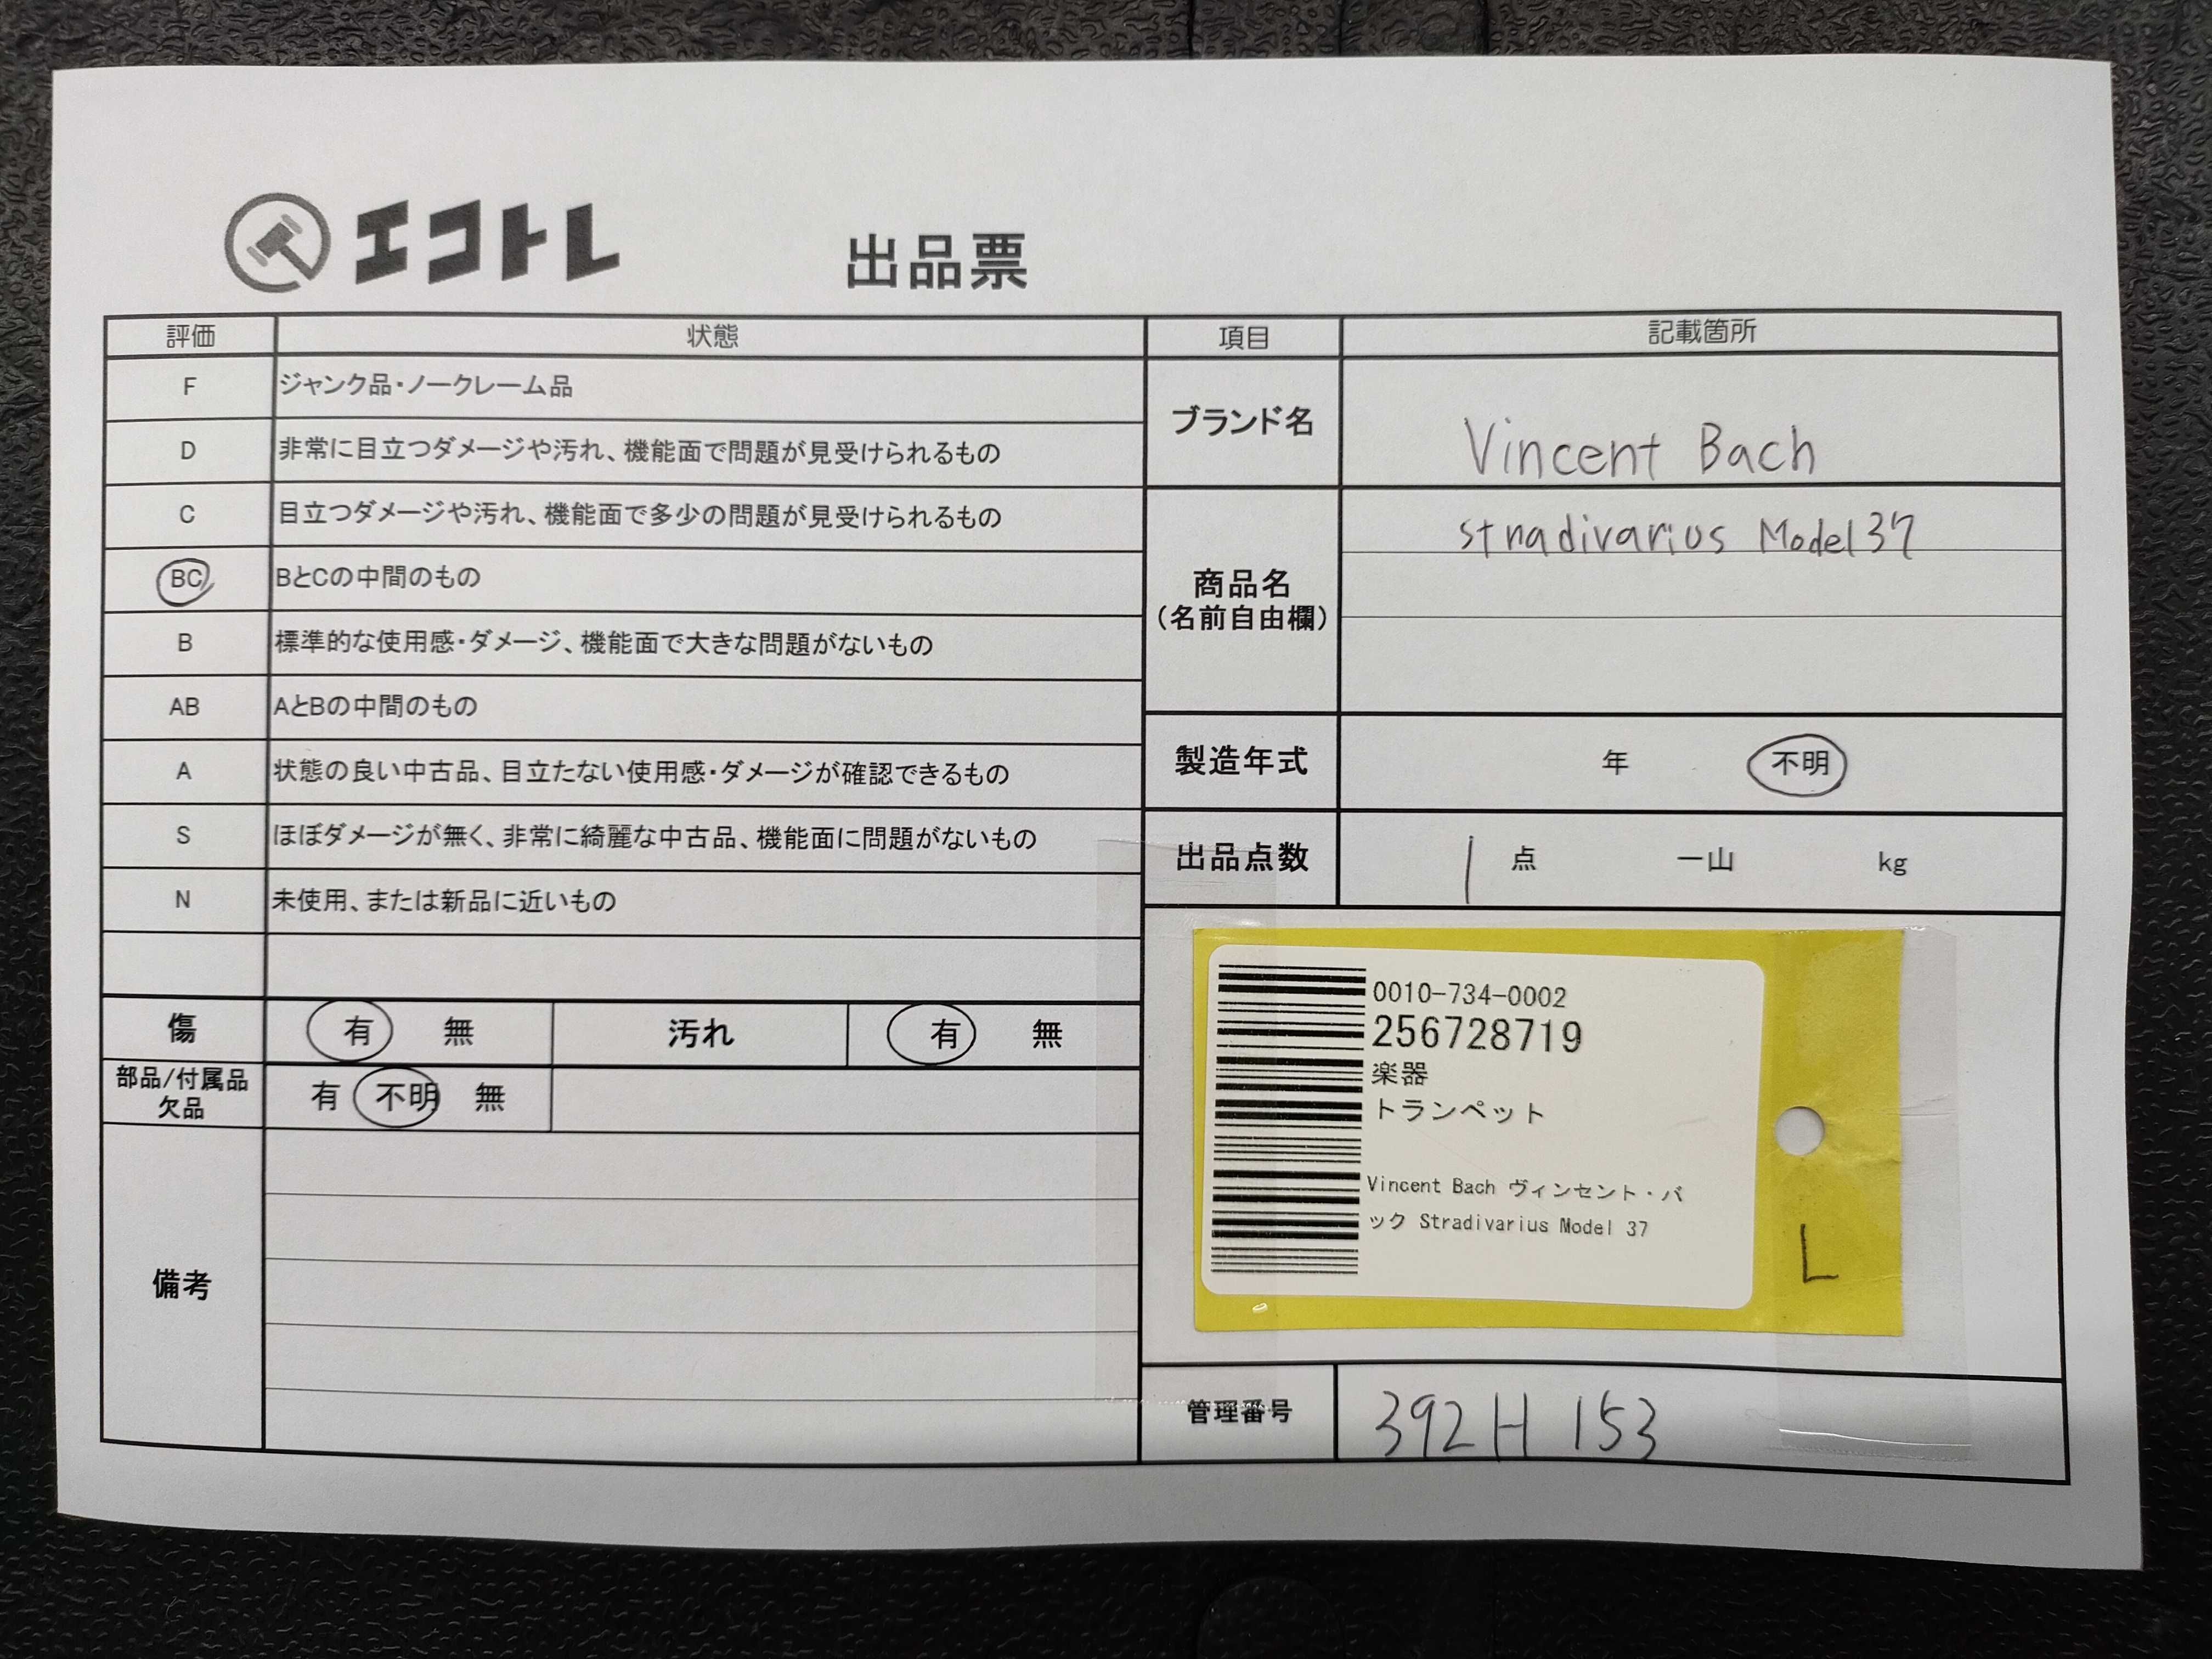 エコトレ
出品票
評価 状態
F ジャンク品・ノークレーム品
D 非常に目立つダメージや汚れ、機能面で問題が見受けられるもの
C 目立つダメージや汚れ、機能面で多少の問題が見受けられるもの
BC BとCの中間のもの
B 標準的な使用感・ダメージ、機能面で大きな問題がないもの
AB AとBの中間のもの
A 状態の良い中古品、目立たない使用感・ダメージが確認できるもの
S ほぼダメージが無く、非常に綺麗な中古品、機能面に問題がないもの
N 未使用、または新品に近いもの
傷 有 無 汚れ 有 無
部品/付属品
欠品 有 不明 無
備考
項目 記載箇所
ブランド名 Vincent Bach
商品名
(名前自由欄)
stradivarius Model 37
製造年式 年 不明
出品点数 1 点 一山 kg
0010-734-0002
256728719
楽器
トランペット
Vincent Bach ヴィンセント・バ
ック Stradivarius Model 37
L
管理番号 392H 153